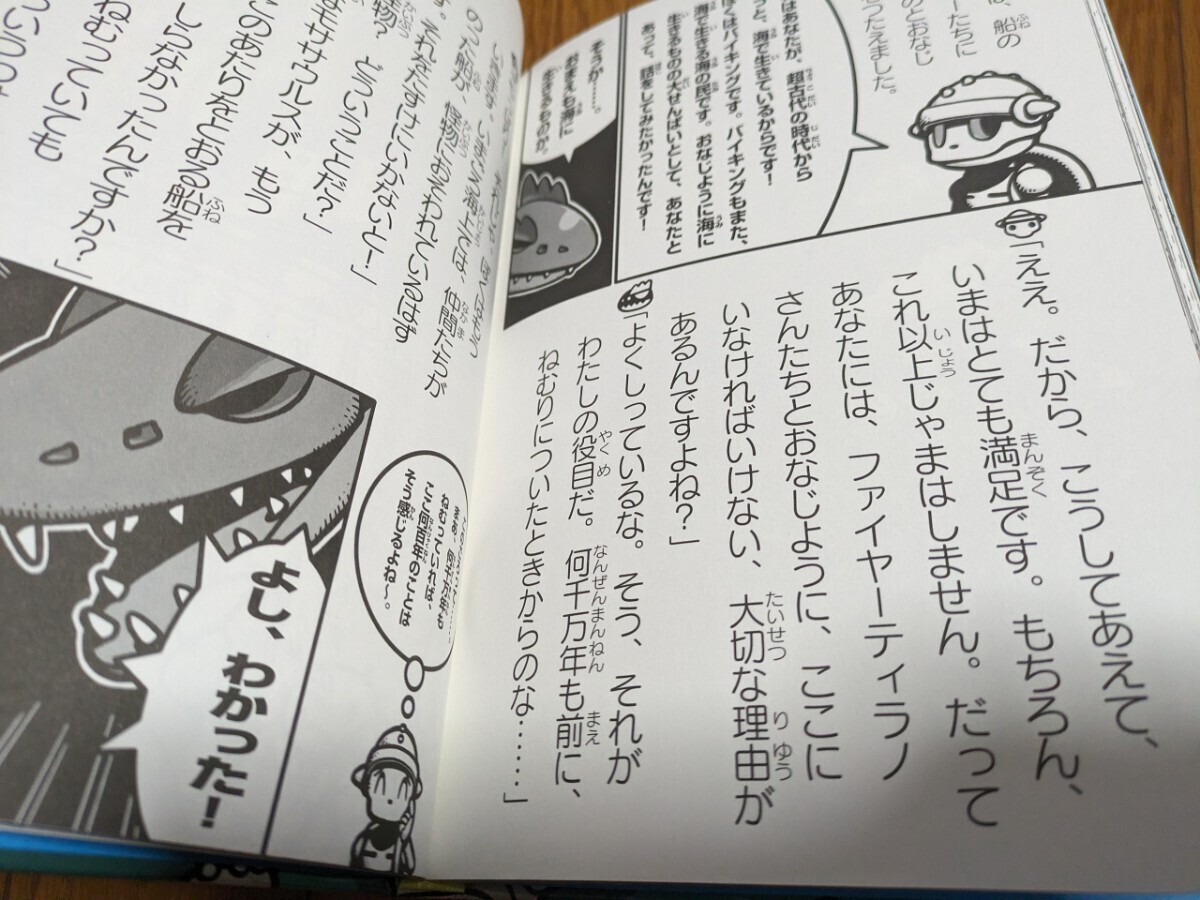 は、船の
ーたちに
のとおなじ
つたえました。
はあなたが、超古代の時代から
っと、海で生きているからです！
ぼくはバイキングです。バイキングもまた、
海で生きる海の民です。おなじように海に
生きるものの大せんぱいとして、あなたと
あって、話をしてみたかったんです！
そうか……。
おまえも海に
生きるものか。
「ええ。だから、こうしてあえて、
いまはとても満足です。もちろん、
これ以上じゃまはしません。だって
あなたには、ファイヤーティラノ
さんたちとおなじように、ここに
いなければいけない、大切な理由が
あるんですよね？」
「よくしっているな。そう、それが
わたしの役目だ。何千万年も前に、
ねむりについたときからのな……」
のった船が、怪物におそわれているはず
す。それをたすけにいかないと！」
怪物？　どういうことだ？」
モササウルスが、もう
このあたりをとおる船を
しらなかったんですか？」
ねむっていても
まあ、何千万年も
ねむっていれば、
ここ何百年のことは
そう感じるよね〜。
よし、わかった！